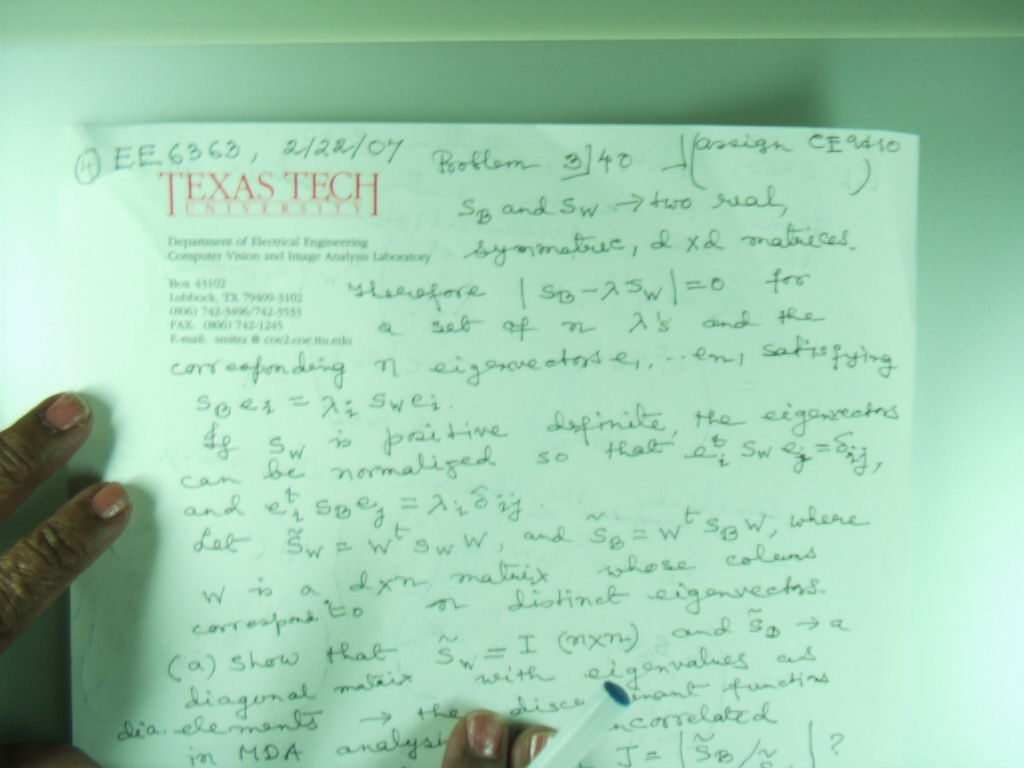 ④ EE 6363, 2/22/07 Problem 3/40 (assign CE9&10)
TEXAS TECH
UNIVERSITY
Department of Electrical Engineering
Computer Vision and Image Analysis Laboratory
Box 43102
Lubbock, TX 79409-3102
(806) 742-3496/742-3533
FAX (806) 742-1245
E-mail: smitra @ coe2.coe.ttu.edu
S_B and S_W → two real,
symmetric, d x d matrices.
Therefore |S_B - λ S_W| = 0 for
a set of n λ's and the
corresponding n eigenvectors e₁, ... eₙ, satisfying
S_B e_i = λ_i S_W e_i.
If S_W is positive definite, the eigenvectors
can be normalized so that e_i^t S_W e_j = δ_ij,
and e_i^t S_B e_j = λ_i δ_ij.
Let S̃_W = W^t S_W W, and S̃_B = W^t S_B W, where
W is a d×n matrix whose colums
correspond to n distinct eigenvectors.
(a) Show that S̃_W = I (n×n) and S̃_B → a
diagonal matrix with eigenvalues as
dia elements → the functions
in MDA J = | S̃_B / S̃ | ?